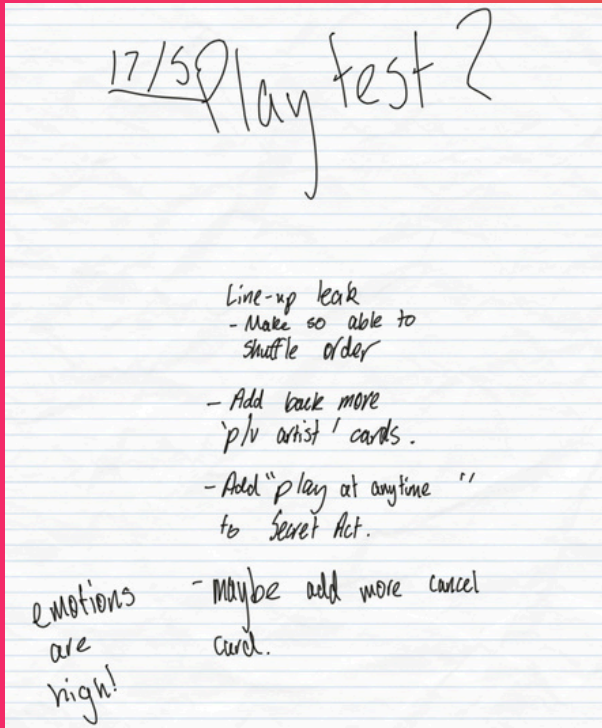 17/5 Play test 2
Line-up leak
- Make so able to
shuffle order
- Add back more
'p/v artist' cards.
- Add "play at anytime"
to Secret Act.
- maybe add more cancel
card.
emotions
are
high!